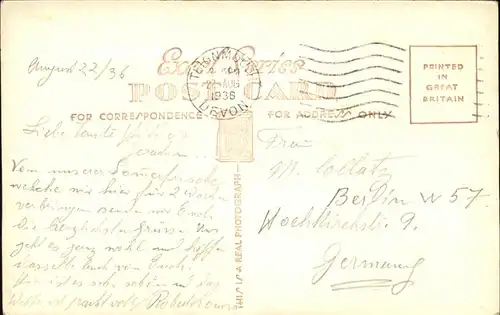 August 22/36
Excel Series
POST CARD
FOR CORRESPONDENCE
FOR ADDRESS ONLY
TEIGNMOUTH
22 AUG
1936
DEVON
PRINTED
IN
GREAT
BRITAIN
THIS IS A REAL PHOTOGRAPH
Liebe
Von unserer Sommerfrische
welche wir hier für 2 Wochen
verbringen senden wir Euch
die herzlichsten Grüsse. Uns
geht es ganz wohl und hoffen
dasselbe auch von Euch.
Hier ist es sehr schön und das
Wetter ist prachtvoll.
Frau
M. Collatz
Berlin W 57.
Hochkirchstr. 9.
Germany